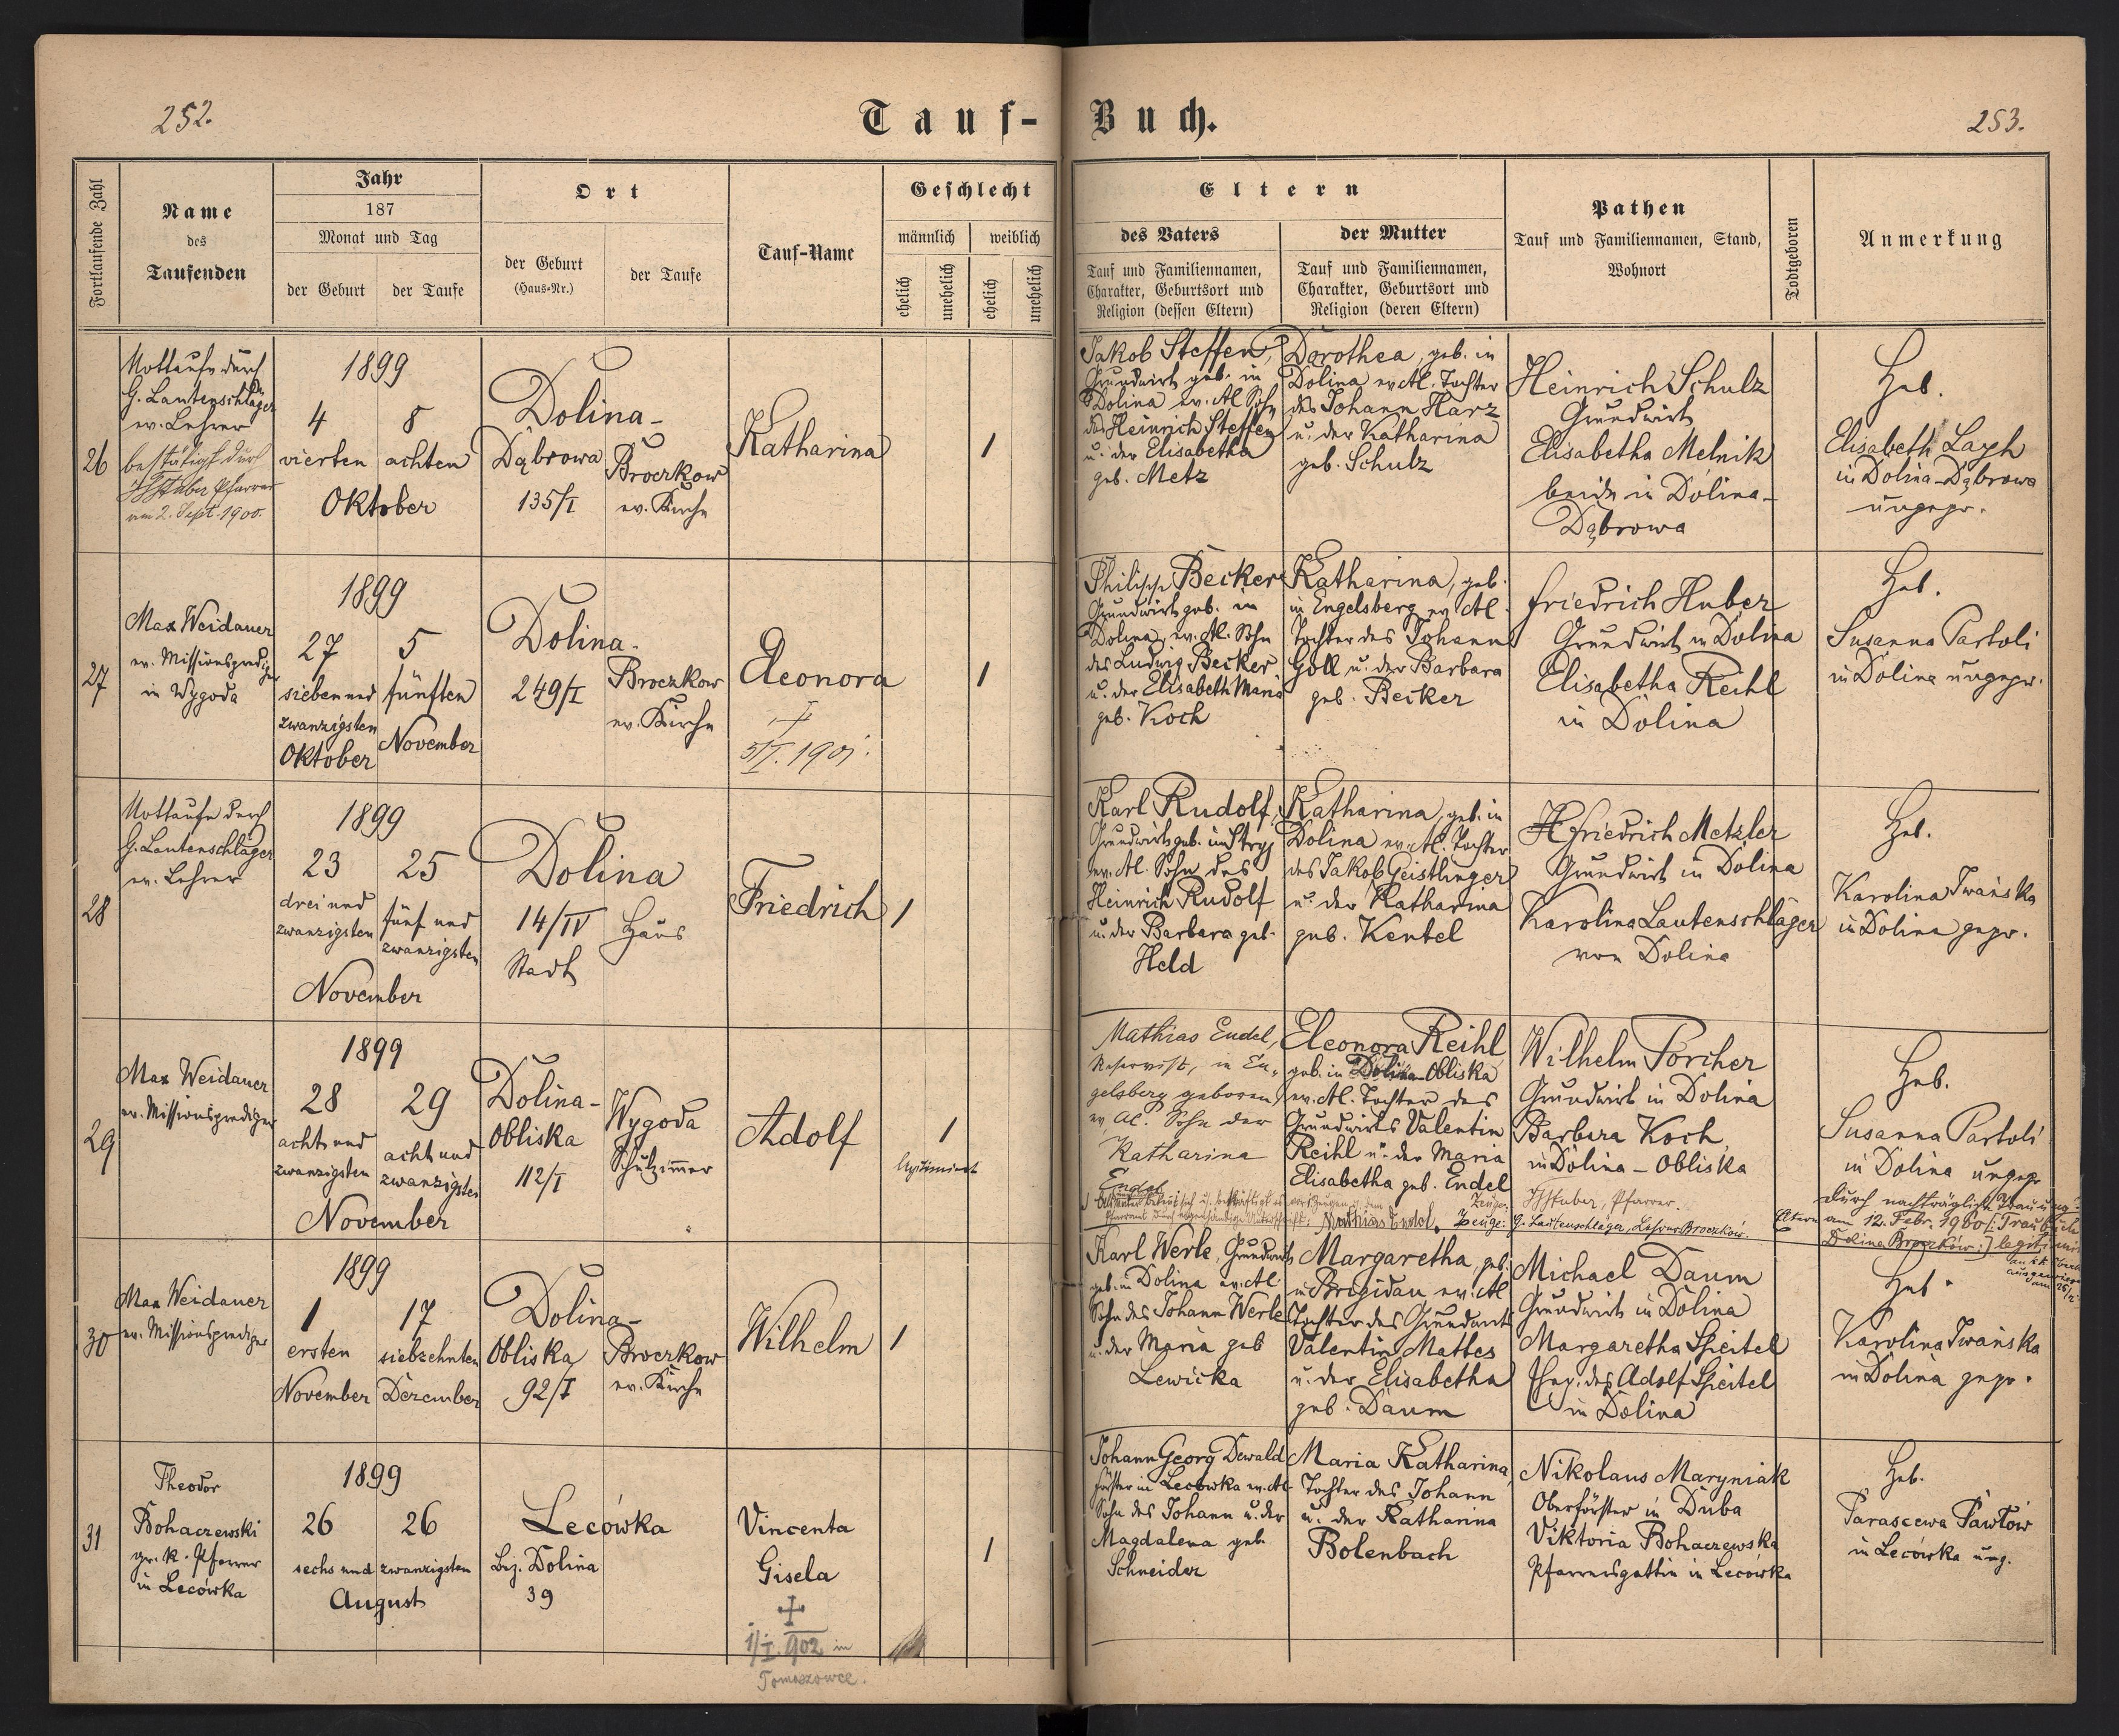 252.
Tauf-
Buch.
253.
Fortlaufende Zahl
Name
des
Taufenden
Jahr
187
Monat und Tag
der Geburt
der Taufe
Ort
der Geburt
(Haus-Nr.)
der Taufe
Tauf-Name
Geschlecht
männlich
weiblich
ehelich
unehelich
ehelich
unehelich
Eltern
des Vaters
Tauf und Familiennamen,
Charakter, Geburtsort und
Religion (dessen Eltern)
der Mutter
Tauf und Familiennamen,
Charakter, Geburtsort und
Religion (deren Eltern)
Pathen
Tauf und Familiennamen, Stand,
Wohnort
Todtgeboren
Anmerkung
26
Nottaufe durch
G. Lautenschläger
ev. Lehrer
bestätigt durch
Pfarrer
am 2. Sept. 1900.
1899
4
vierten
8
achten
Oktober
Dolina-
Dąbrowa
135/I
Broczkow
ev. Kirche
Katharina
1
Jakob Steffen,
Grundwirt geb. in
Dolina ev. Al Sohn
des Heinrich Steffen
u. der Elisabetha
geb. Metz
Dorothea, geb. in
Dolina ev. Al. Tochter
des Johann Harz
u. der Katharina
geb. Schulz
Heinrich Schulz
Grundwirt
Elisabetha Melnik
beide in Dolina-
Dąbrowa
Heb.
Elisabeth Layh
in Dolina-Dąbrowa
ungepr.
27
Max Weidauer
ev. Missionsprediger
in Wygoda
1899
27
sieben und
zwanzigsten
Oktober
5
fünften
November
Dolina-
249/I
Broczkow
ev. Kirche
Eleonora
†
5/I. 1901.
1
Philipp Becker
Grundwirt geb. in
Dolina, ev. Al. Sohn
des Ludwig Becker
u. der Elisabeth Maria
geb. Koch
Katharina, geb.
in Engelsberg ev Al
Tochter des Johann
Göll u. der Barbara
geb. Becker
Friedrich Huber
Grundwirt in Dolina
Elisabetha Reihl
in Dolina
Heb.
Susanna Partoli
in Dolina ungepr.
28
Nottaufe durch
G. Lautenschläger
ev. Lehrer
1899
23
drei und
zwanzigsten
25
fünf und
zwanzigsten
November
Dolina
14/IV
Stadt
Haus
Friedrich
1
Karl Rudolf,
Grundwirt geb. in Stryj
ev. Al. Sohn des
Heinrich Rudolf
u. der Barbara geb.
Held
Katharina, geb. in
Dolina ev. Al. Tochter
des Jakob Geistlinger
u. der Katharina
geb. Kentel
Friedrich Metzler
Grundwirt in Dolina
Karolina Lautenschläger
von Dolina
Heb.
Karolina Iwańska
in Dolina gepr.
29
Max Weidauer
ev. Missionsprediger
1899
28
acht und
zwanzigsten
29
acht und
zwanzigsten
November
Dolina-
Obliska
112/I
Wygoda
Schulzimmer
Adolf
1
legitimirt
Mathias Endel,
Reservist, in En-
gelsberg geboren,
ev. Al. Sohn der
Katharina
Endel
Eleonora Reihl
geb. in Dolina-Obliska
ev. Al. Tochter des
Grundwirts Valentin
Reihl u. der Maria
Elisabetha geb. Endel
Wilhelm Porcher
Grundwirt in Dolina
Barbara Koch
in Dolina - Obliska
Heb.
Susanna Partoli
in Dolina ungepr
Mathias Endel. Zeuge: G. Lautenschläger, Lehrer Broczków.
Pfarrer.
durch nachträgliche Trauung
am 12. Febr. 1900
Dolina Broczków
30
Max Weidauer
ev. Missionsprediger
1899
1
ersten
November
17
siebzehnten
Dezember
Dolina-
Obliska
92/I
Broczkow
ev. Kirche
Wilhelm
1
Karl Werle, Grundwirt
geb. in Dolina ev. Al
Sohn des Johann Werle
u. der Maria geb
Lewicka
Margaretha, geb.
in Brigidau ev. Al
Tochter des Grundwirts
Valentin Mattes
u. der Elisabetha
geb. Daum
Michael Daum
Grundwirt in Dolina
Margaretha Speitel
Eheg. des Adolf Speitel
in Dolina
Heb.
Karolina Iwańska
in Dolina gepr.
31
Theodor
Bohaczewski
gr. k. Pfarrer
in Lecówka
1899
26
26
sechs und zwanzigsten
August
Lecówka
Bez. Dolina
39
Vincenta
Gisela
†
1/I. 902 in
Tomaszowce.
1
Johann Georg Dewald
Förster in Lecówka ev. Al
Sohn des Johann u. der
Magdalena geb
Schneider
Maria Katharina
Tochter des Johann
u. der Katharina
Bolenbach
Nikolaus Maryniak
Oberförster in Duba
Viktoria Bohaczewska
Pfarrersgattin in Lecówka
Heb.
Parascewa Pawłow
in Lecówka ung.